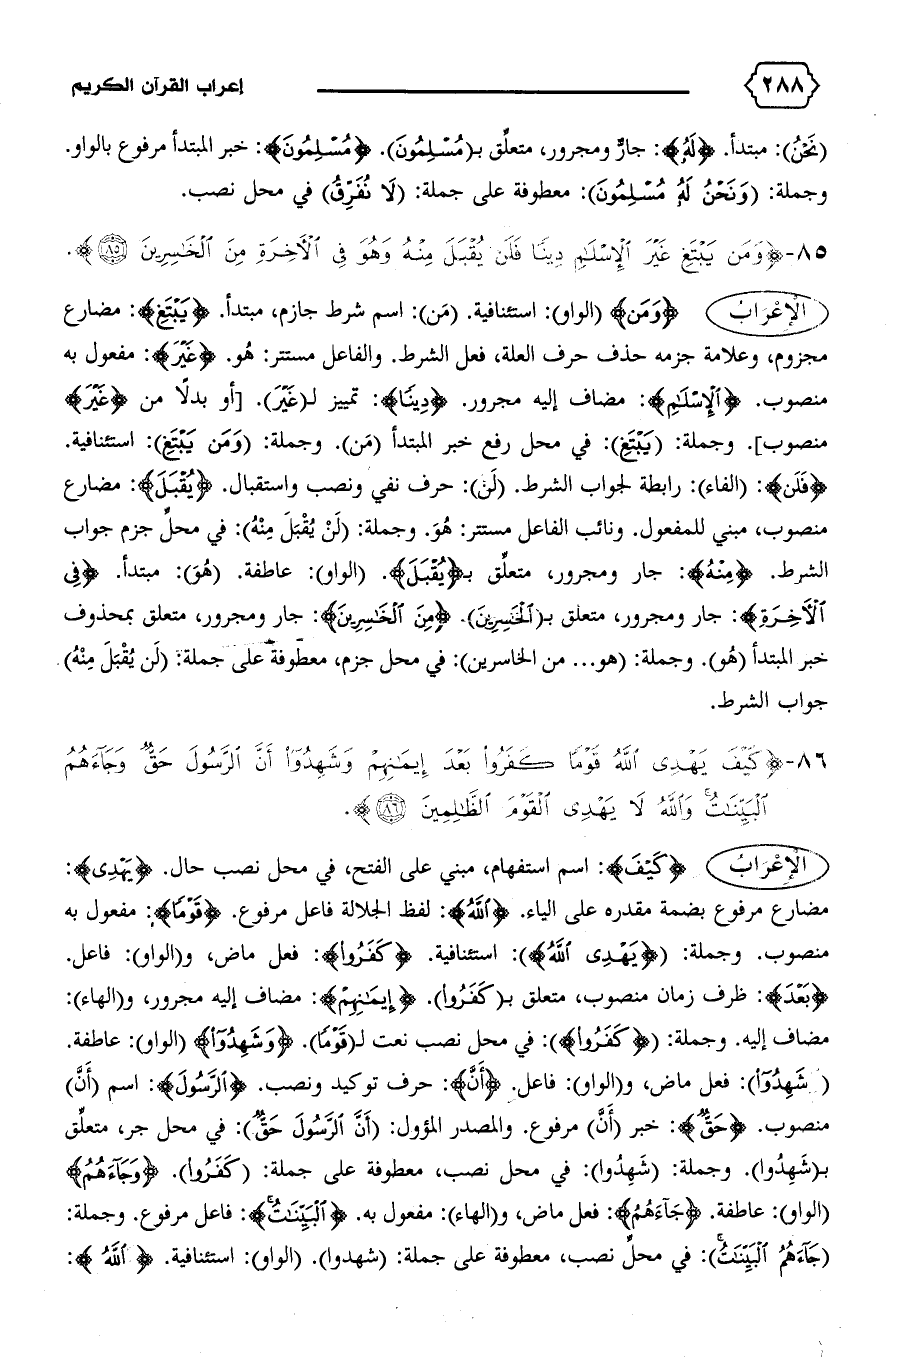 ٢٨٨ إعراب القرآن الكريم
(نَحْنُ): مبتدأ. ﴿لَهُ﴾: جارٌ ومجرور، متعلِّق بـ(مُسْلِمُونَ). ﴿مُسْلِمُونَ﴾: خبر المبتدأ مرفوع بالواو.
وجملة: (وَنَحْنُ لَهُ مُسْلِمُونَ): معطوفة على جملة: (لَا نُفَرِّقُ) في محل نصب.
٨٥- ﴿وَمَن يَبْتَغِ غَيْرَ ٱلْإِسْلَـٰمِ دِينًا فَلَن يُقْبَلَ مِنْهُ وَهُوَ فِى ٱلْـَٔاخِرَةِ مِنَ ٱلْخَـٰسِرِينَ ٨٥﴾.
الإِعْرَابُ ﴿وَمَن﴾ (الواو): استئنافية. (مَن): اسم شرط جازم، مبتدأ. ﴿يَبْتَغِ﴾: مضارع
مجزوم، وعلامة جزمه حذف حرف العلة، فعل الشرط. والفاعل مستتر: هُو. ﴿غَيْرَ﴾: مفعول به
منصوب. ﴿ٱلْإِسْلَـٰمِ﴾: مضاف إليه مجرور. ﴿دِينًا﴾: تمييز لـ(غَيْرَ). [أو بدلًا من ﴿غَيْرَ﴾
منصوب]. وجملة: (يَبْتَغِ): في محل رفع خبر المبتدأ (مَن). وجملة: (وَمَن يَبْتَغِ): استئنافية.
﴿فَلَن﴾: (الفاء): رابطة لجواب الشرط. (لَن): حرف نفي ونصب واستقبال. ﴿يُقْبَلَ﴾: مضارع
منصوب، مبني للمفعول. ونائب الفاعل مستتر: هُوَ. وجملة: (لَنْ يُقْبَلَ مِنْهُ): في محلِّ جزم جواب
الشرط. ﴿مِنْهُ﴾: جار ومجرور، متعلِّق بـ﴿يُقْبَلَ﴾. (الواو): عاطفة. (هُوَ): مبتدأ. ﴿فِى
ٱلْـَٔاخِرَةِ﴾: جار ومجرور، متعلق بـ(ٱلْخَـٰسِرِينَ). ﴿مِنَ ٱلْخَـٰسِرِينَ﴾: جار ومجرور، متعلق بمحذوف
خبر المبتدأ (هُو). وجملة: (هو... من الخاسرين): في محل جزم، معطوفة على جملة: (لَن يُقْبَلَ مِنْهُ)
جواب الشرط.
٨٦- ﴿كَيْفَ يَهْدِى ٱللَّهُ قَوْمًا كَفَرُوا۟ بَعْدَ إِيمَـٰنِهِمْ وَشَهِدُوٓا۟ أَنَّ ٱلرَّسُولَ حَقٌّ وَجَآءَهُمُ
ٱلْبَيِّنَـٰتُ ۚ وَٱللَّهُ لَا يَهْدِى ٱلْقَوْمَ ٱلظَّـٰلِمِينَ ٨٦﴾.
الإِعْرَابُ ﴿كَيْفَ﴾: اسم استفهام، مبني على الفتح، في محل نصب حال. ﴿يَهْدِى﴾:
مضارع مرفوع بضمة مقدره على الياء. ﴿ٱللَّهُ﴾: لفظ الجلالة فاعل مرفوع. ﴿قَوْمًا﴾: مفعول به
منصوب. وجملة: (﴿يَهْدِى ٱللَّهُ﴾): استئنافية. ﴿كَفَرُوا۟﴾: فعل ماض، و(الواو): فاعل.
﴿بَعْدَ﴾: ظرف زمان منصوب، متعلق بـ(كَفَرُوا۟). ﴿إِيمَـٰنِهِمْ﴾: مضاف إليه مجرور، و(الهاء):
مضاف إليه. وجملة: (﴿كَفَرُوا۟﴾): في محل نصب نعت لـ(قَوْمًا). ﴿وَشَهِدُوٓا۟﴾ (الواو): عاطفة.
(شَهِدُوٓا۟): فعل ماض، و(الواو): فاعل. ﴿أَنَّ﴾: حرف توكيد ونصب. ﴿ٱلرَّسُولَ﴾: اسم (أَنَّ)
منصوب. ﴿حَقٌّ﴾: خبر (أَن) مرفوع. والمصدر المؤول: (أَنَّ ٱلرَّسُولَ حَقٌّ): في محل جر، متعلِّق
بـ(شَهِدُوا). وجملة: (شَهِدُوا): في محل نصب، معطوفة على جملة: (كَفَرُوا۟). ﴿وَجَآءَهُمُ﴾
(الواو): عاطفة. ﴿جَآءَهُمُ﴾: فعل ماض، و(الهاء): مفعول به. ﴿ٱلْبَيِّنَـٰتُ ۚ﴾: فاعل مرفوع. وجملة:
(جَآءَهُمُ ٱلْبَيِّنَـٰتُ ۚ): في محلِّ نصب، معطوفة على جملة: (شهدوا). (الواو): استئنافية. ﴿ٱللَّهُ﴾: